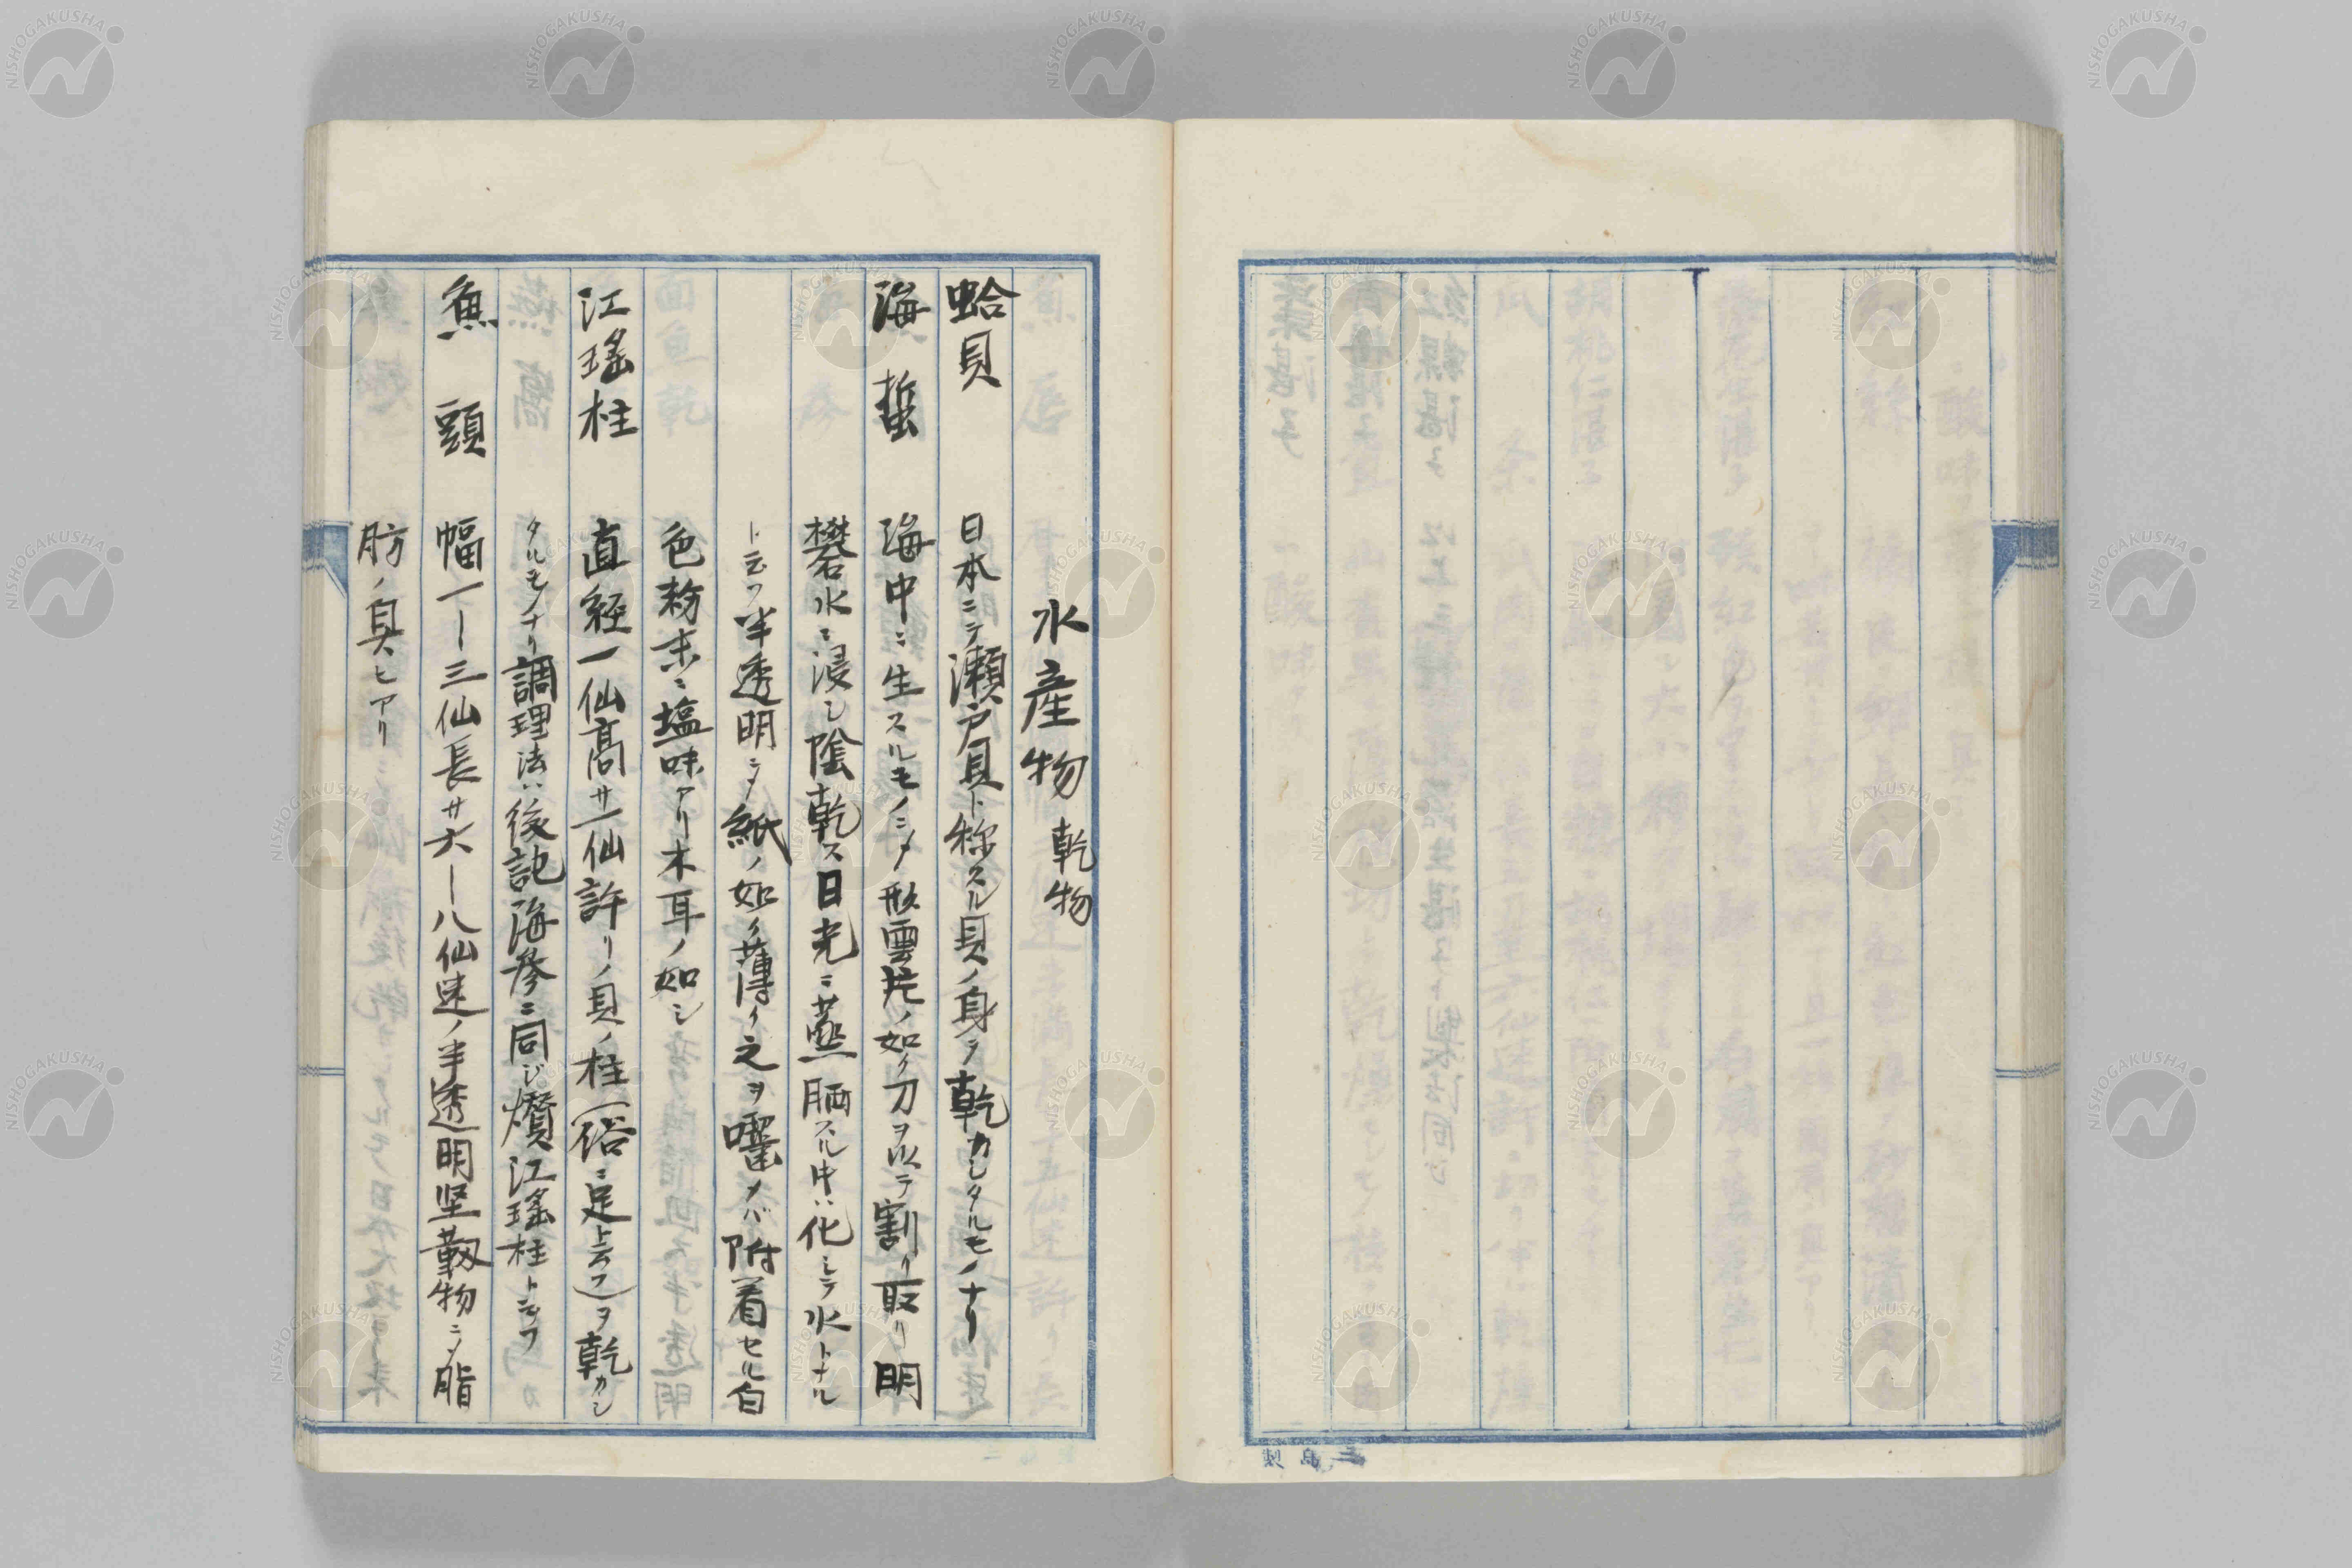 水産物 乾物
蛤貝 日本ニテ瀬戸貝ト称スル貝ノ身ヲ乾カシタルモノナリ
海蜇 海中ニ生スルモノニメ形雲片ノ如ク刀ヲ以テ割リ取リ明
礬水ニ浸シ陰乾ス日光ニ晒スル中ハ化シテ水トナル
ト云フ半透明ニメ紙ノ如ク薄ク之ヲ嚙メバ附着セル白
色粉末ニ塩味アリ木耳ノ如シ
江瑤柱 直経一仙高サ一仙許リノ貝ノ柱(俗ニ足ト云フ)ヲ乾カシ
タルモノナリ調理法ハ後記海参ニ同ジ江瑤柱ト云フ
魚頭 幅一ー三仙長サ六ー八仙迷ノ半透明堅靱物ニメ脂
肪ノ臭ヒアリ
三島製
NISHOGAKUSHA